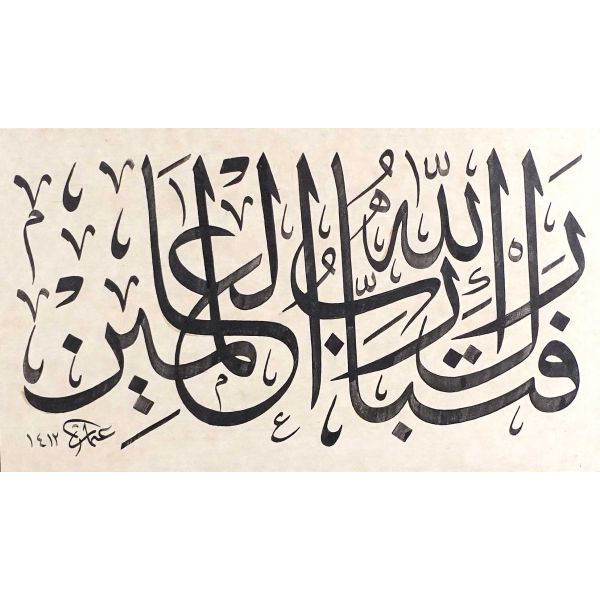 فَتَبَارَكَ اللّٰهُ رَبُّ الْعَالَمِينَ
١٤١٢